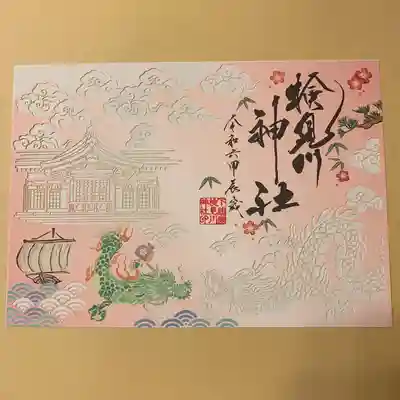 検見川
神社
令和六甲辰歳